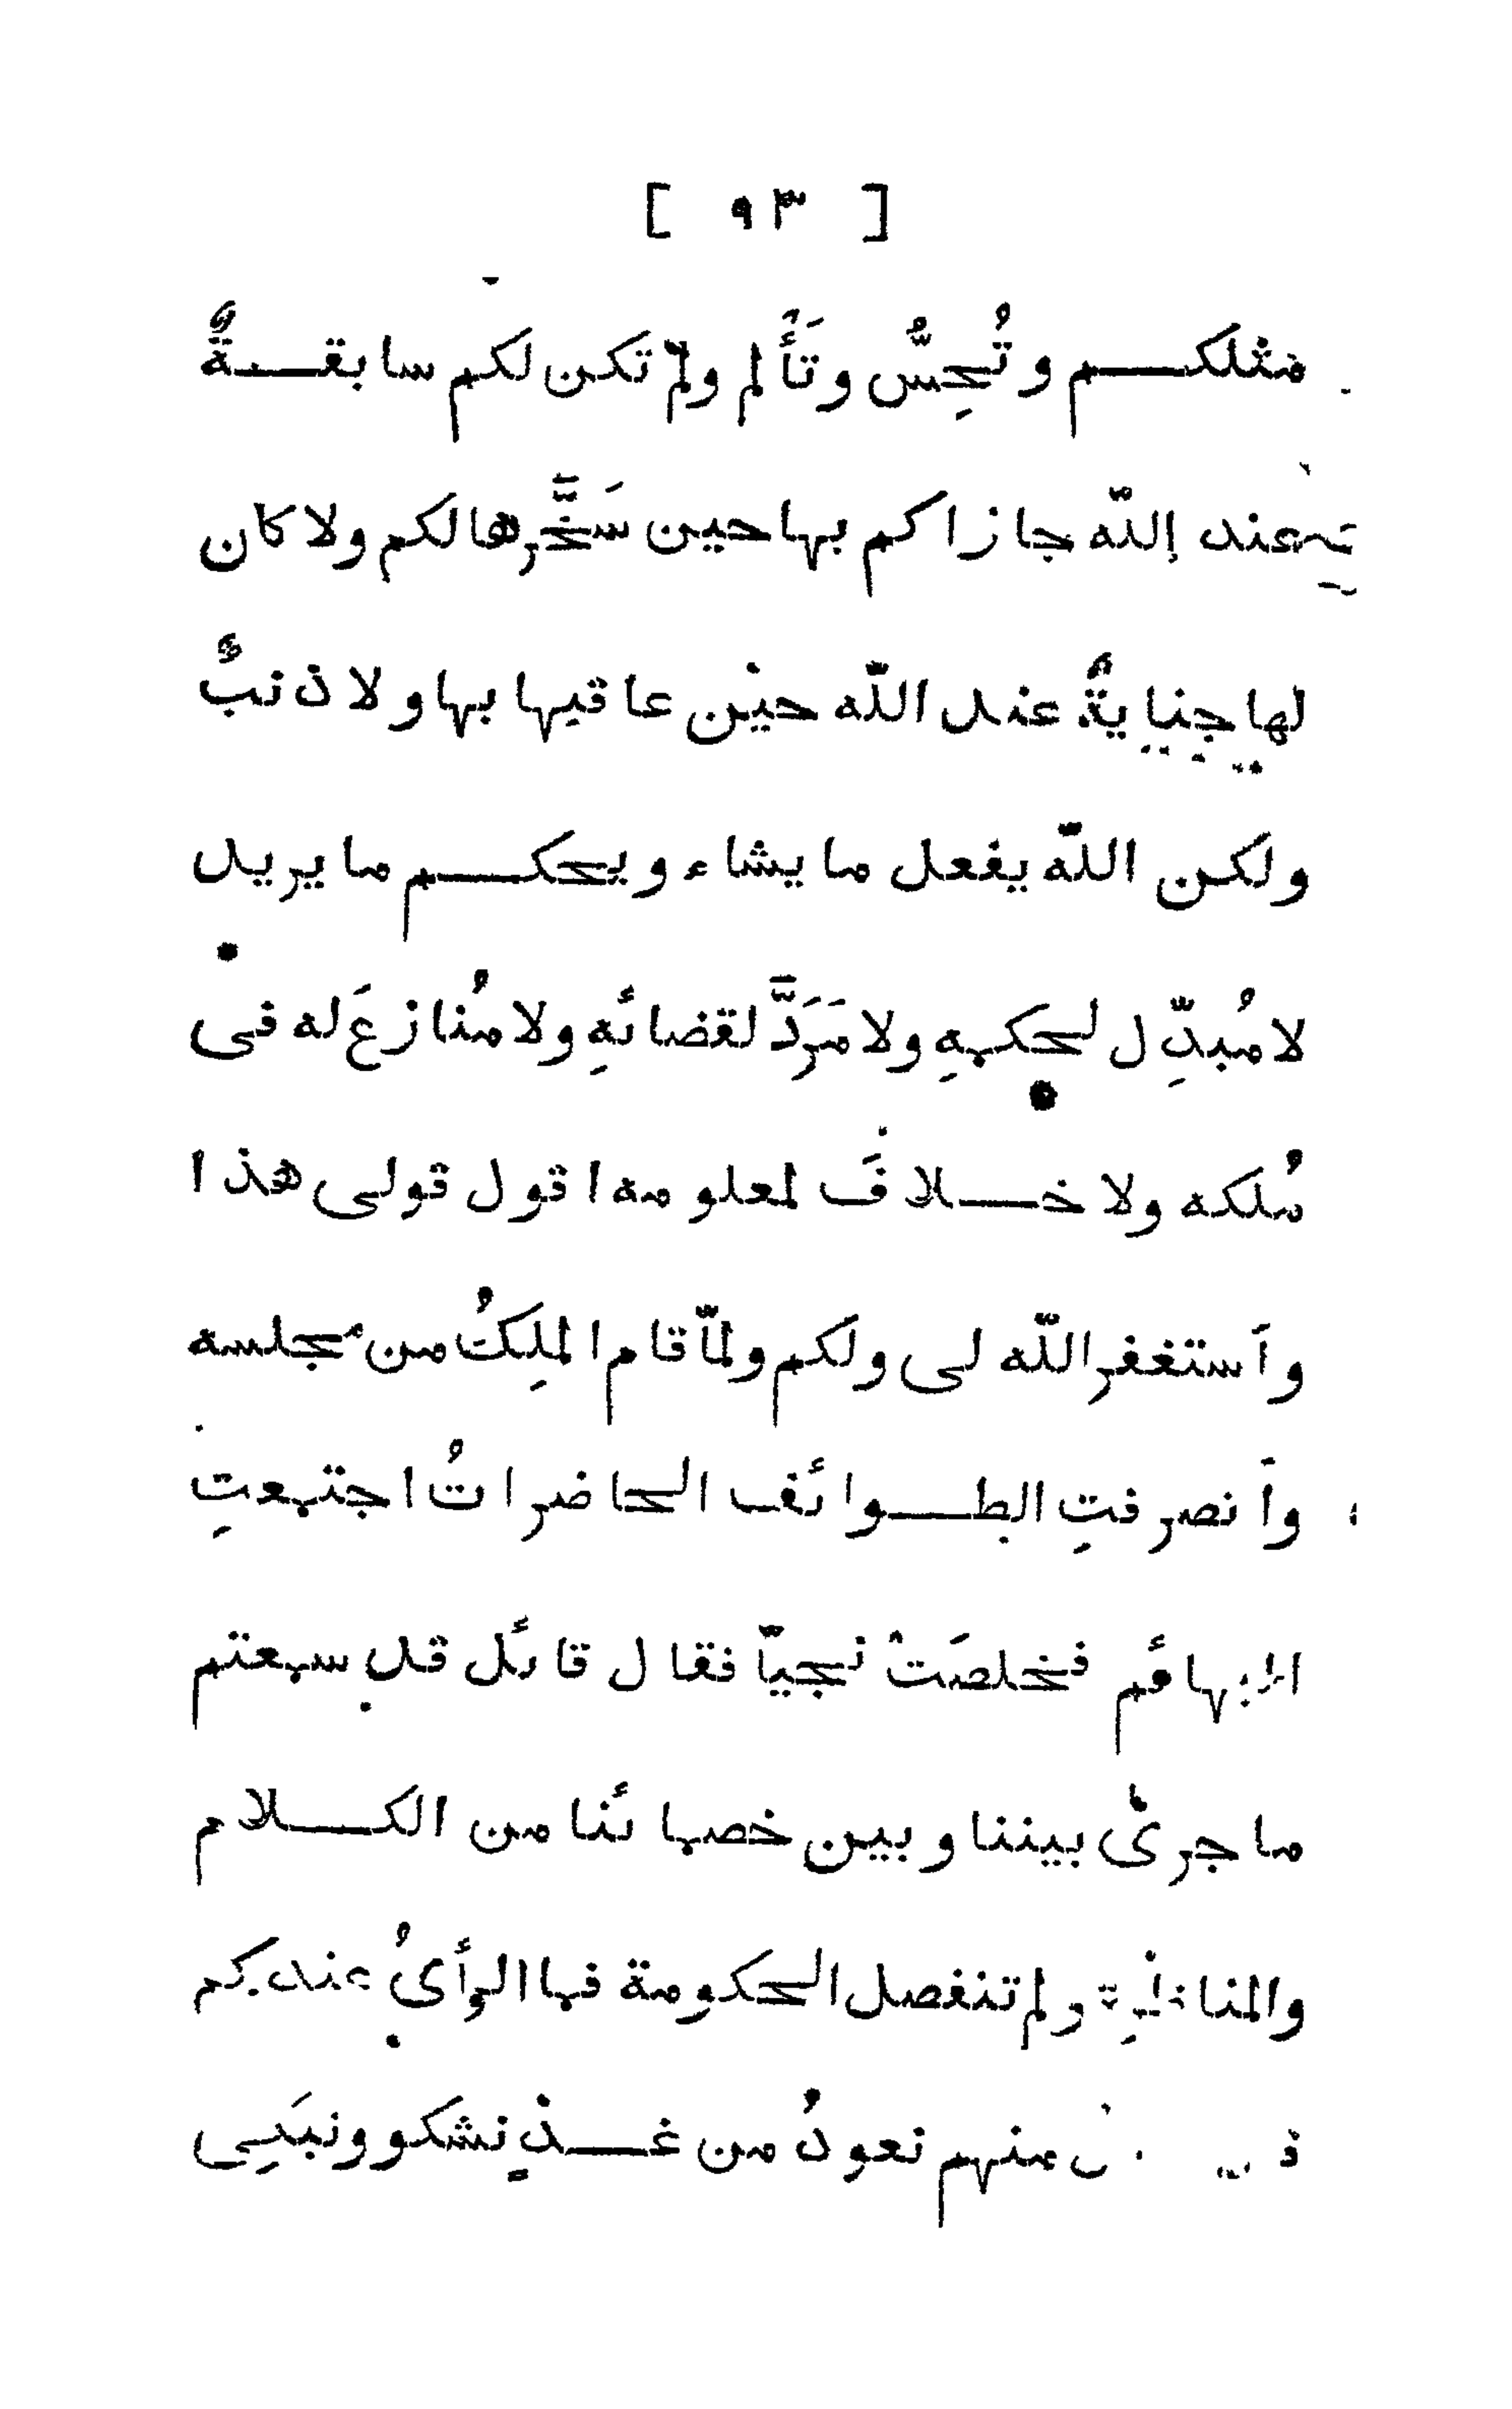 [ ٩٣ ]
مثلكم وتُحِسُّ وتَأْلم ولمّ تكن لكم سابقةٌ
عند اللّه جازاكم بها حين سَخَّرها لكم ولا كان
لها جنايةٌ عند اللّه حين عاقبها بها ولا ذنبٌ
ولكن اللّه يفعل ما يشاء ويحكم ما يريد
لا مُبدِّل لحكمهِ ولا مَرَدَّ لقضائهِ ولا مُنازعَ له فى
مُلكه ولا خلافَ لمعلومه اقول قولى هذا
وآستغفر اللّه لى ولكم ولمّا قام الملِكُ من مجلسه
وآنصرفتِ الطوائف الحاضراتُ اجتمعتِ
البهائم فخلصَتْ نجيّا فقال قائل قد سمعتم
ما جرىٰ بيننا وبين خصمائنا من الكلام
والمناظرة ولم تنفصل الحكومة فما الرأىُ عندكم
منهم نعودُ من غدٍ نشكو ونبَكِى